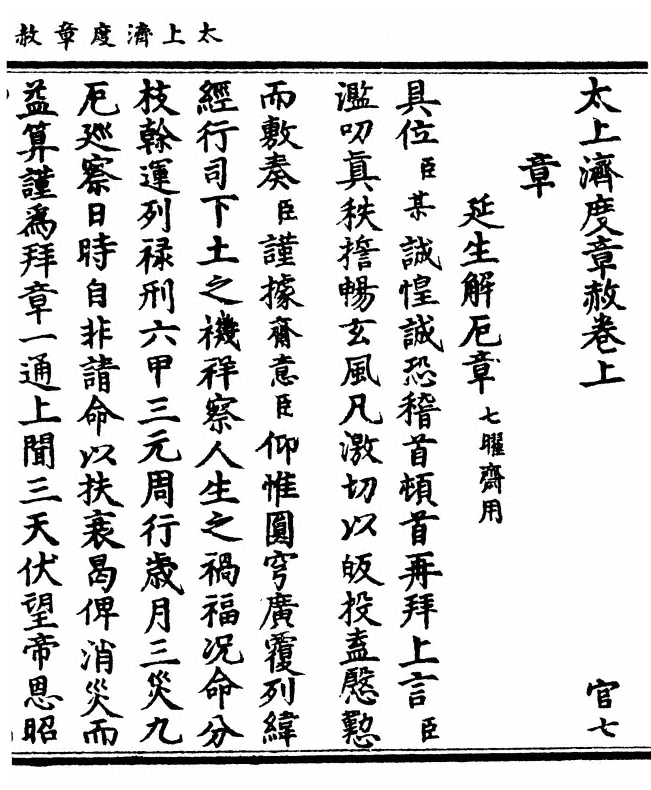 太上濟度章赦
太上濟度章赦卷上 官七
章
延生解厄章 七曜齋用
具位臣某誠惶誠恐稽首頓首再拜上言臣
濫叨真秩擔暢玄風凡激切以皈投盍慇懃
而敷奏臣謹據齋意臣仰惟圓穹廣覆列緯
經行司下土之禨祥察人生之禍福况命分
枝幹運列禄刑六甲三元周行歲月三災九
厄廵察日時自非請命以扶衰曷俾消災而
益算謹爲拜章一通上聞三天伏望帝恩昭